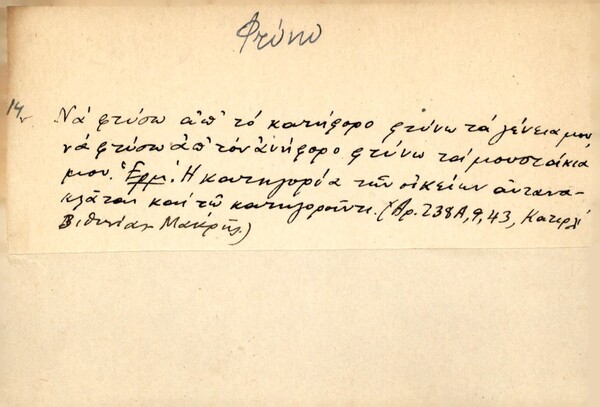 Φτύνω
14
Νά φτύσω ἀπ' τό κατήφορο φτύνω τά γένεια μου,
νά φτύσω ἀπ' τόν ἀνήφορο φτύνω τά μουστάκια
μου. Ἑρμ. Ἡ κατηγορία τῶν οἰκείων ἀντανα-
κλᾶται καί τῷ κατηγοροῦντι. (Ἀρ. 238Α, 9, 43, Κατιρλί
Βιθυνίας Μακρῆς.)